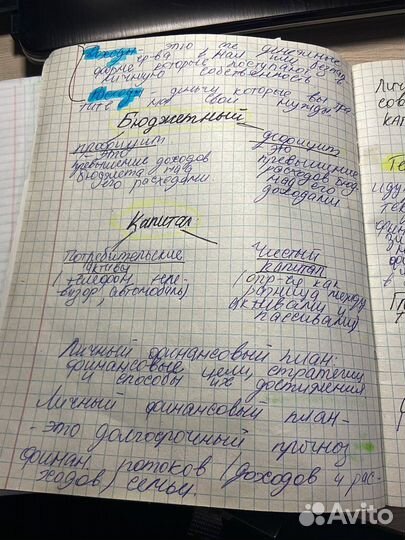 Доходы - это те денежные
ср-ва в нал или безнал
форме которые поступают в
личную собственность
Расходы - деньги которые вы тра-
тите на свои нужды
Бюджетный
профицит
это
превышение доходов
бюджета над
его расходами.
дефицит
это
превышение
расходов бюд
над его
доходами.
Капитал:
Потребительские
активы
(телефон, теле-
визор, автомобиль)
Чистый
капитал
(опр-ся как
разница между
активами и
пассивами)
Личный финансовый план:
финансовые цели, стратегии
и способы их достижения
Личный финансовый план-
- это долгосрочный прогноз
финан. потоков (доходов и рас-
ходов) семьи.
Личн
сов
кап
Те
Avito